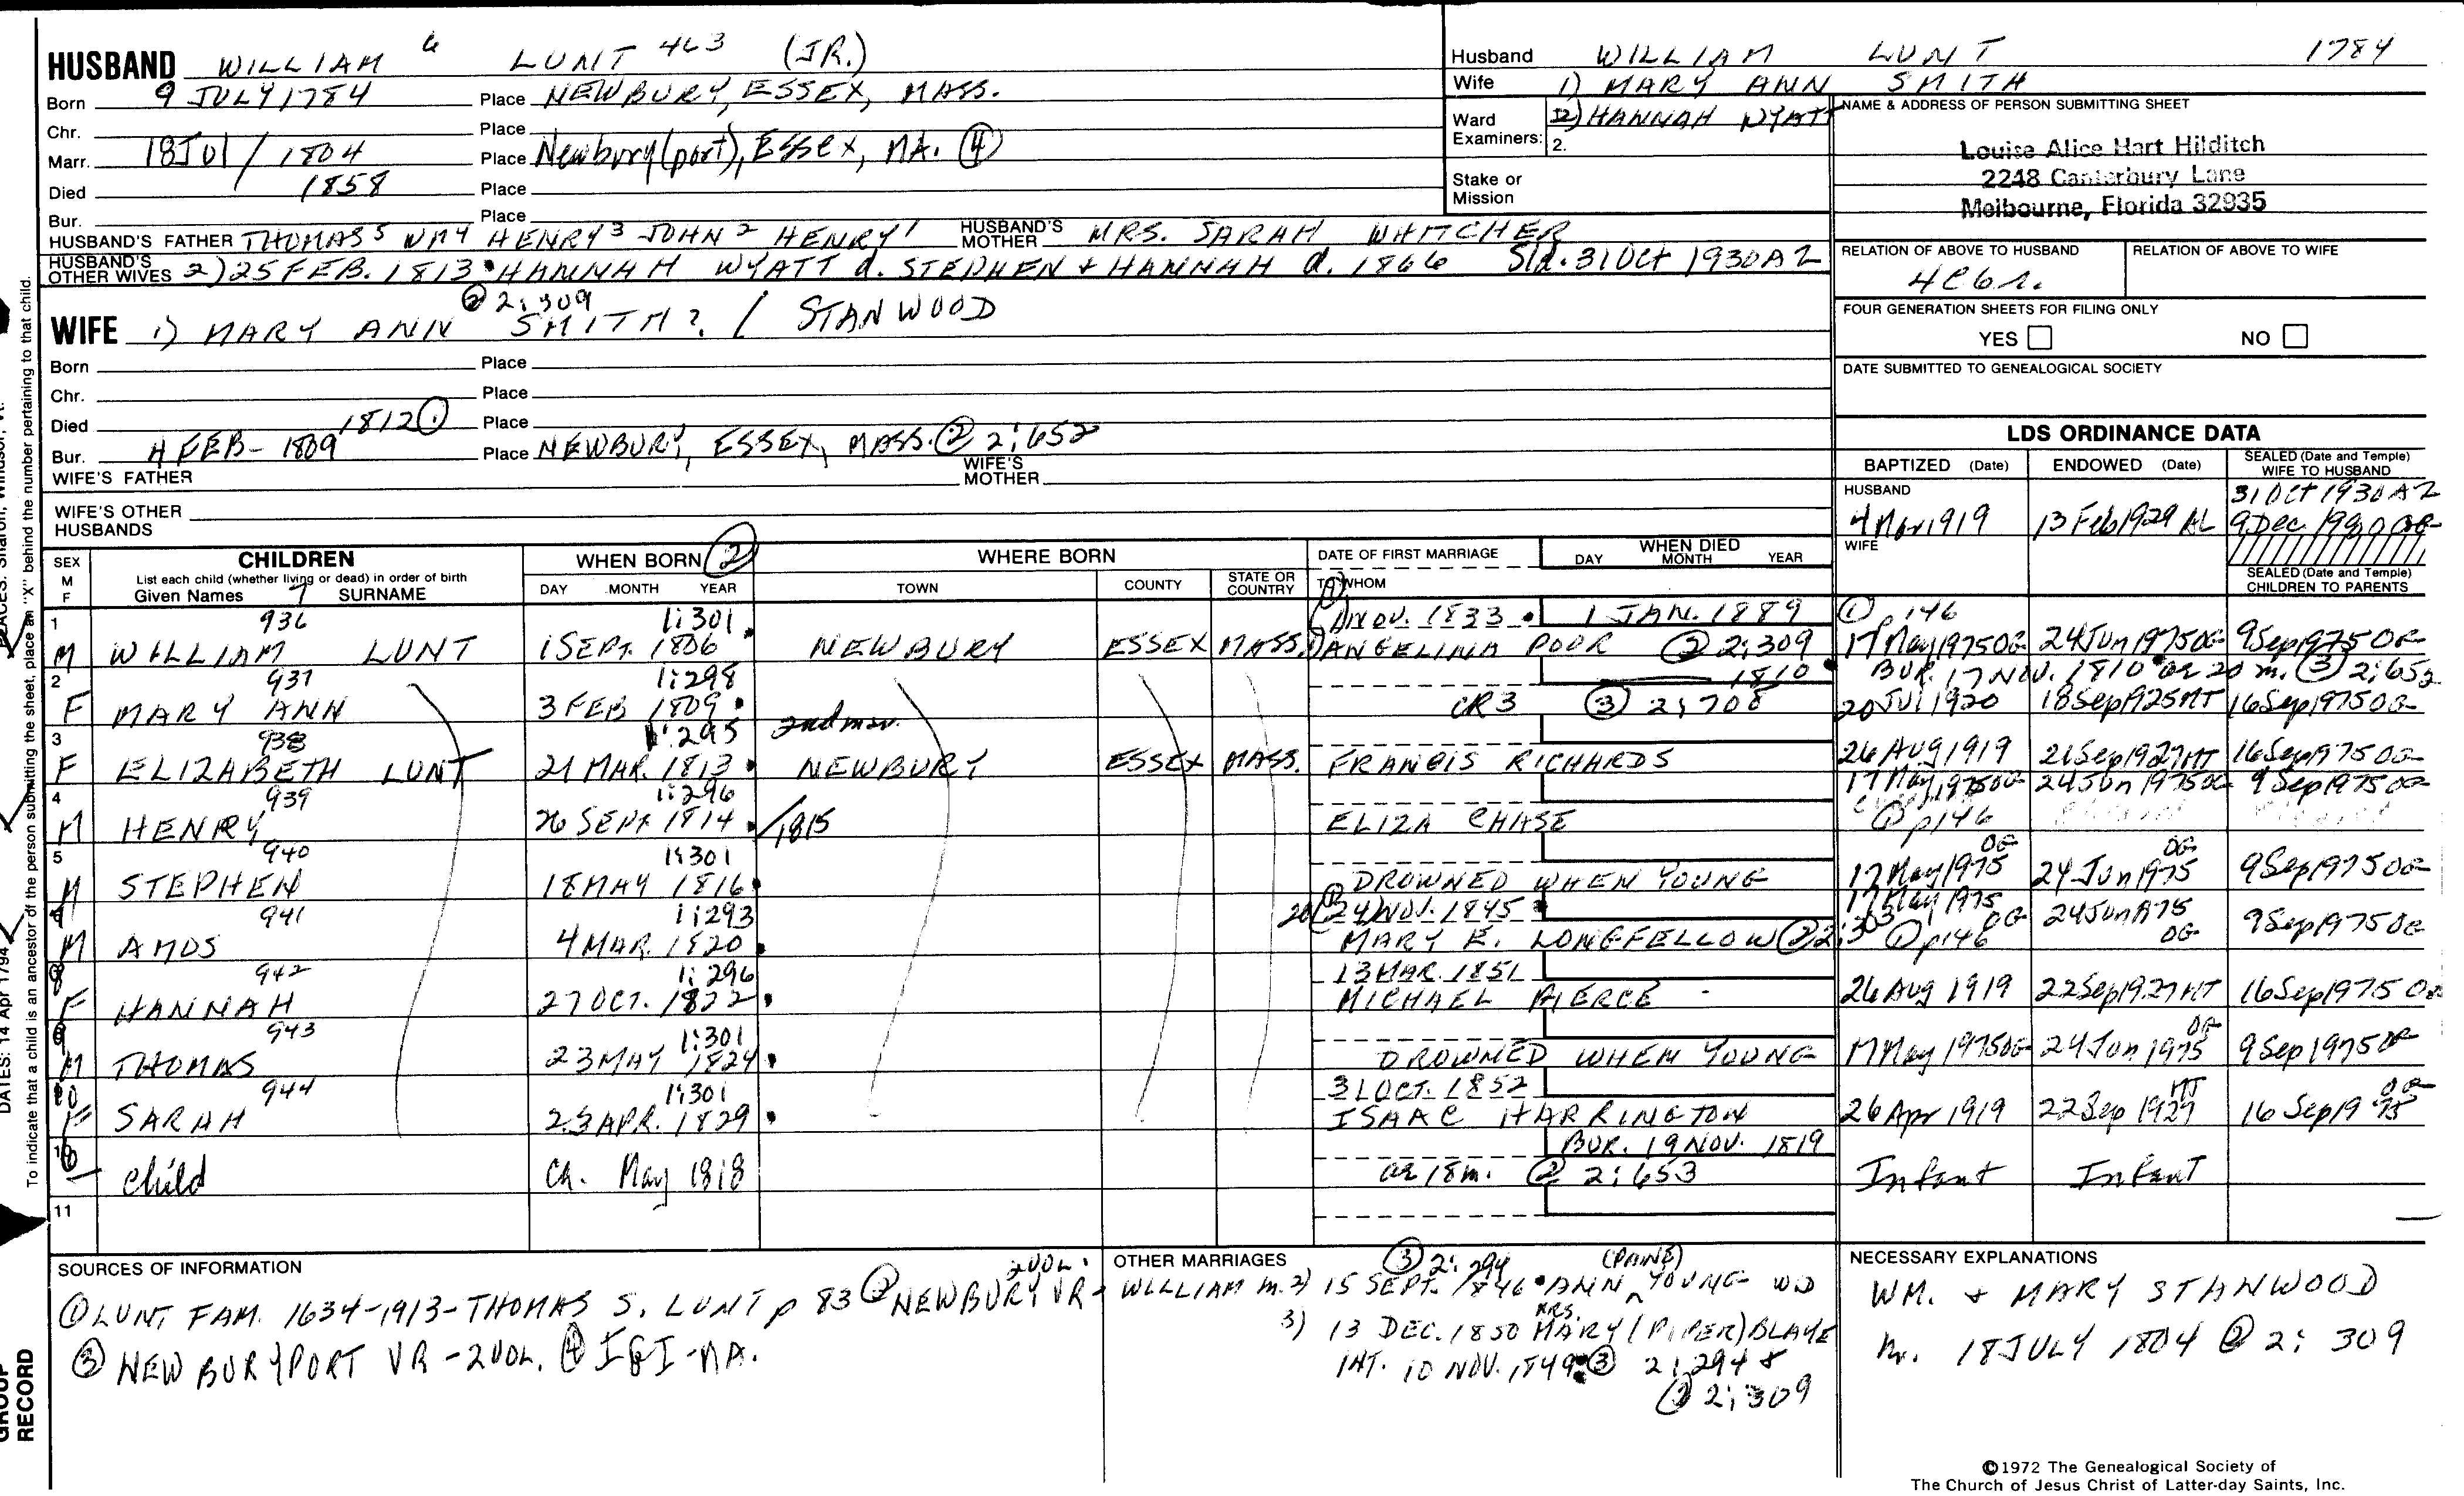 HUSBAND WILLIAM 6 LUNT 463 (JR.)
Born 9 JULY 1784 Place NEWBURY, ESSEX, MASS.
Chr. Place
Marr. 18 Jul / 1804 Place Newbury(port), Essex, MA. ④
Died 1858 Place
Bur. Place
HUSBAND'S FATHER THOMAS 5 WM 4 HENRY 3 JOHN 2 HENRY 1 HUSBAND'S MOTHER MRS. SARAH WHITCHER
HUSBAND'S OTHER WIVES 2) 25 FEB. 1813 • HANNAH WYATT d. STEPHEN + HANNAH d. 1866 Sld. 31 Oct 1930 AZ
② 2:309
WIFE 1) MARY ANN SMITH? / STANWOOD
Born Place
Chr. Place
Died 1812 ① Place
Bur. 4 FEB - 1809 Place NEWBURY, ESSEX, MASS. ② 2:652
WIFE'S FATHER WIFE'S MOTHER
WIFE'S OTHER HUSBANDS
Husband WILLIAM LUNT 1784
Wife 1) MARY ANN SMITH
Ward Examiners: 2) HANNAH WYATT
2.
Stake or Mission
NAME & ADDRESS OF PERSON SUBMITTING SHEET
Louise Alice Hart Hilditch
2248 Canterbury Lane
Melbourne, Florida 32935
RELATION OF ABOVE TO HUSBAND RELATION OF ABOVE TO WIFE
FOUR GENERATION SHEETS FOR FILING ONLY
YES NO
DATE SUBMITTED TO GENEALOGICAL SOCIETY
LDS ORDINANCE DATA
BAPTIZED (Date) ENDOWED (Date) SEALED (Date and Temple) WIFE TO HUSBAND
31 Oct 1930 AZ
HUSBAND
13 Feb 1929 AL
WIFE
SEALED (Date and Temple) CHILDREN TO PARENTS
SEX M F CHILDREN WHEN BORN ② WHERE BORN DATE OF FIRST MARRIAGE WHEN DIED
List each child (whether living or dead) in order of birth DAY MONTH YEAR TOWN COUNTY STATE OR COUNTRY TO WHOM DAY MONTH YEAR
Given Names 7 SURNAME
1 936 1:301 NOV. 1833 • 1 JAN. 1889 ① p 146
M WILLIAM LUNT 1 SEPT. 1806 NEWBURY ESSEX MASS. ANGELINA POOR ② 2:309 17 May 1975 OG 24 Jun 1975 OG 9 Sep 1975 OG
2 937 1:298 1810 • BUR. 17 NOV. 1810 ae 20 m. ③ 2:653
F MARY ANN 3 FEB 1809 • CR3 ③ 2:708 20 Jul 1920 18 Sep 1925 MT 16 Sep 1975 OG
3 938 1:295 2nd mar.
F ELIZABETH LUNT 21 MAR. 1813 • NEWBURY ESSEX MASS. FRANCIS RICHARDS 26 Aug 1919 21 Sep 1927 MT 16 Sep 1975 OG
4 939 1:296 17 May 1975 OG 24 Jun 1975 OG 9 Sep 1975 OG
M HENRY 26 SEPT 1814 • /1815 ELIZA CHASE ① p 146
5 940 1:301
M STEPHEN 18 MAY 1816 • DROWNED WHEN YOUNG 17 May 1975 OG 24 Jun 1975 OG 9 Sep 1975 OG
941 1:293 (24) NOV. 1845 • 17 May 1975 OG 24 Jun 1975 OG 9 Sep 1975 OG
M AMOS 4 MAR. 1820 • MARY E. LONGFELLOW ② 2:303 ① p 146
942 1:296 13 MAR. 1851
F HANNAH 27 OCT. 1822 • MICHAEL PIERCE 26 Aug 1919 22 Sep 1927 MT 16 Sep 1975 OG
943 1:301
M THOMAS 23 MAY 1824 • DROWNED WHEN YOUNG 17 May 1975 OG 24 Jun 1975 OG 9 Sep 1975 OG
944 1:301 31 OCT. 1852
F SARAH 23 APR. 1829 • ISAAC HARRINGTON 26 Apr 1919 22 Sep 1927 MT 16 Sep 1975 OG
10 BUR. 19 NOV. 1819
child ca. May 1818 ae 18 m. ② 2:653 Infant Infant
11
SOURCES OF INFORMATION
① LUNT FAM. 1634-1913 - THOMAS S. LUNT p 83 ② NEWBURY VR - 2 VOL.
③ NEWBURYPORT VR - 2 VOL. ④ IGI - MA.
OTHER MARRIAGES ③ 2:294 (PAINE)
WILLIAM m. 2) 15 SEPT. 1846 • ANN YOUNG WD
3) 13 DEC. 1850 MRS. MARY (PIPER) BLAKE
INT. 10 NOV. 1849 • ③ 2:294 &
② 2:309
NECESSARY EXPLANATIONS
WM. + MARY STANWOOD
m. 18 JULY 1804 ② 2:309
©1972 The Genealogical Society of
The Church of Jesus Christ of Latter-day Saints, Inc.
To indicate that a child is an ancestor of the person submitting the sheet, place an "X" behind the number pertaining to that child.
DATES: 14 Apr 1794
GROUP RECORD